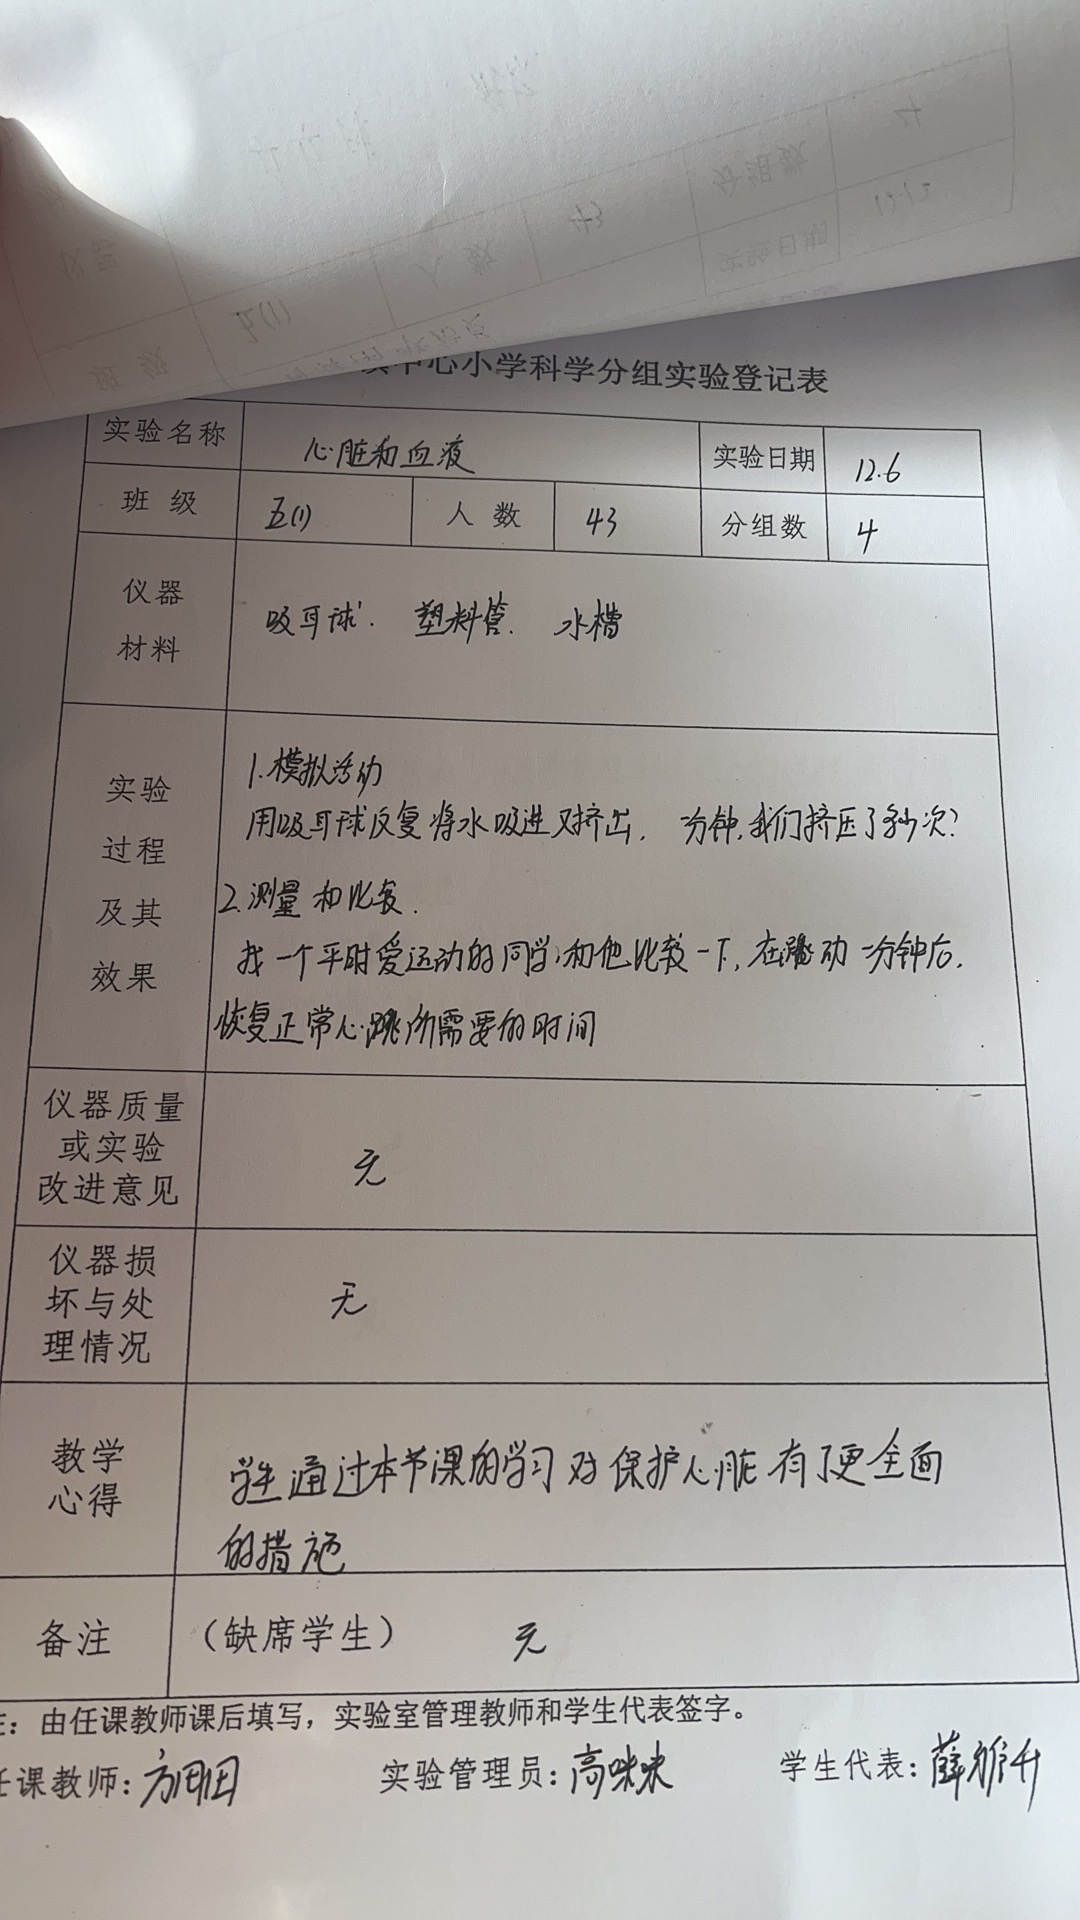 中心小学科学分组实验登记表
实验名称 心脏和血液 实验日期 12.6
班级 五(1) 人数 43 分组数 4
仪器
材料
吸耳球. 塑料管. 水槽
实验
过程
及其
效果
1.模拟活动
用吸耳球反复将水吸进又挤出, 一分钟,我们挤压了多少次?
2.测量和比较.
找一个平时爱运动的同学,和他比较一下,在 动一分钟后,
恢复正常心跳所需要的时间
仪器质量
或实验
改进意见
无
仪器损
坏与处
理情况
无
教学
心得
学生通过本节课的学习对保护心脏有了更全面
的措施
备注 (缺席学生) 无
:由任课教师课后填写,实验室管理教师和学生代表签字。
任课教师: 实验管理员:高咪米 学生代表:薛